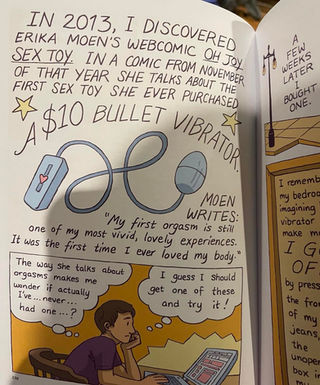 IN 2013, I DISCOVERED
ERIKA MOEN'S WEBCOMIC OH JOY,
SEX TOY. IN A COMIC FROM NOVEMBER
OF THAT YEAR SHE TALKS ABOUT THE
FIRST SEX TOY SHE EVER PURCHASED
A $10 BULLET VIBRATOR.
MOEN
WRITES:
"My first orgasm is still
one of my most vivid, lovely experiences.
It was the first time I ever loved my body."
The way she talks about
orgasms makes me
wonder if actually
I've...never...
had one...?
I guess I should
get one of these
and try it!
A
FEW
WEEKS
LATER
I
BOUGHT
ONE.
I rememb
my bedroo
imagining
vibrator
make m
I G
OF
by press
the fron
of my
jeans,
the
unope
box in
my